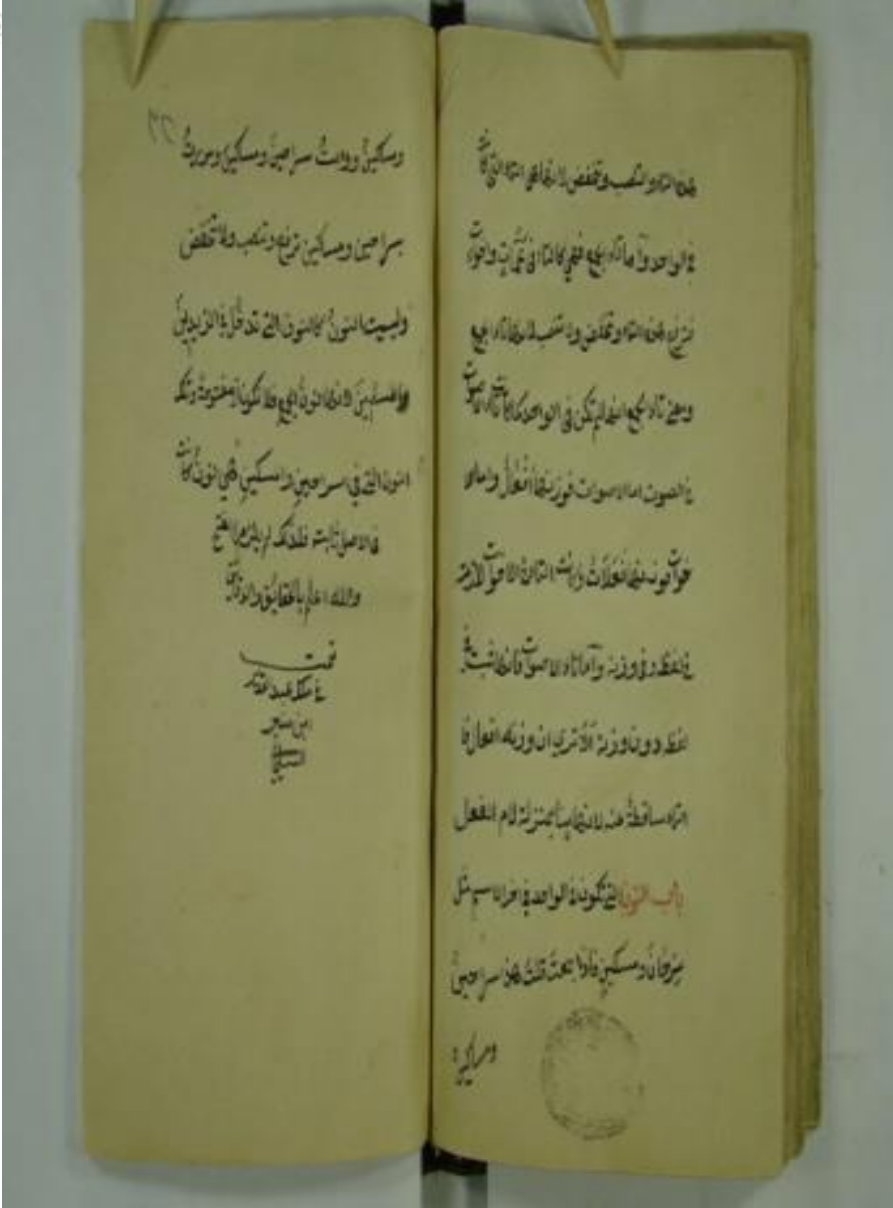 هذه التاء وتنصب وتخفض لانها هي التاء التي كانت
في الواحد واما تاء الجمع فهي كالتاء في عمات واخوات
ترفع هذه التاء وتخفض ولا تنصب لانها تاء الجمع
ومعنى تاء الجمع انها لم تكن في الواحد كما كانت تاء الاصوات
في الصوت اما الاصوات فوزنها أفعال واما
فوزنها فعلات
في لفظه وفي وزنه وأما تاء الاصوات فانها ثبتت في
لفظه دون وزنه ألا ترى ان وزنه افعال
التاء ساقطة منه لانها بمنزلة لام الفعل
باب النون التي تكون في الواحد في اخر الاسم مثل
سرحان ومسكين فاذا جمعت قلت هذه سراحين
ومساكين
٢٦
ومساكين ورايت سراحين ومساكين ومررت
بسراحين ومساكين ترفع وتنصب ولا تخفض
وليست النون كالنون التي تدخل في الزيدين
والمسلمين لانها نون الجمع فلا تكون الا مفتوحة وتلك
النون التي في سراحين ومساكين فهي النون كانت
في الاصل ثابتة فلذلك لم يلزمها الفتح
والله اعلم بالحقايق والدقايق
تمت